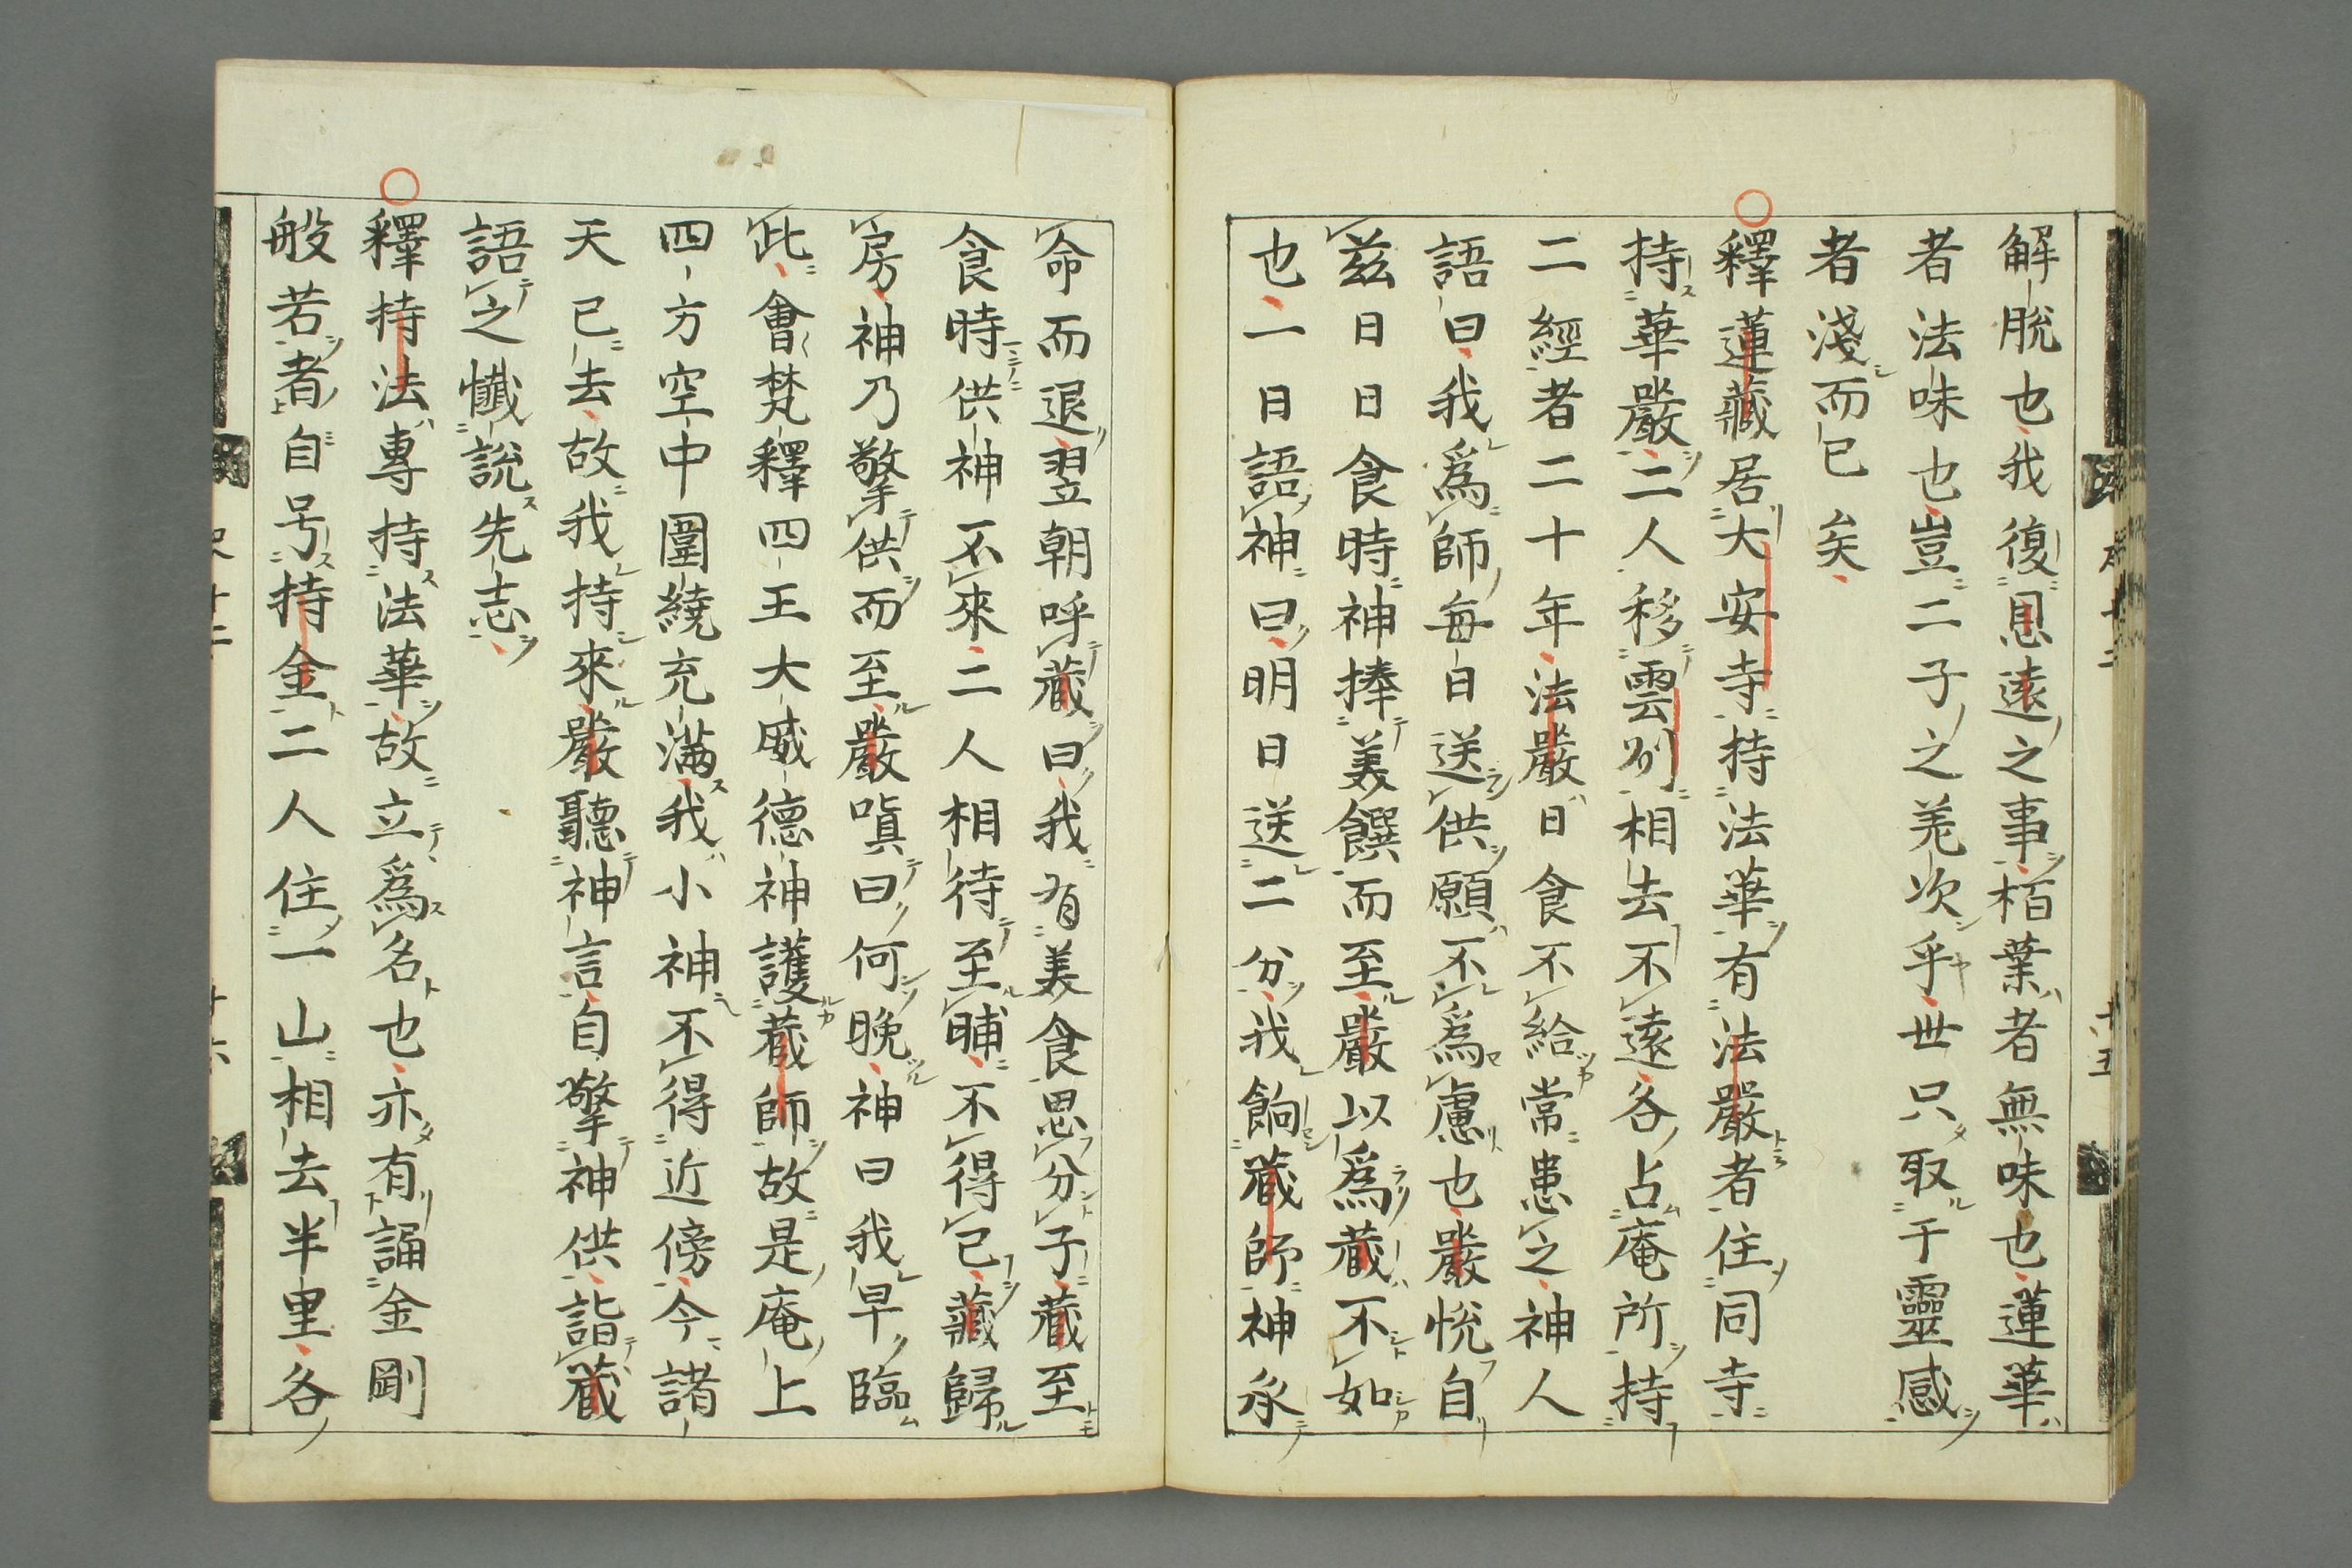 解脫也我復息遠之事栢葉者無味也蓮華
者法味也豈二子之羌次乎世只取于靈感
者淺而已矣
釋蓮藏居大安寺持法華有法嚴者住同寺
持華嚴二人移雲別相去不遠各占庵所持
二經者二十年法嚴日食不給常患之神人
語曰我爲師每日送供願不爲慮也嚴悅自
茲日日食時神捧美饌而至嚴以爲藏不如
也一日語神曰明日送二分我餉藏師神承
命而退翌朝呼藏曰我有美食思分子藏至
食時供神不來二人相待至晡不得已藏歸
房神乃擎供而至嚴嗔曰何晚神曰我早臨
此會梵釋四王大威德神護藏師故是庵上
四方空中圍繞充滿我小神不得近傍今諸
天已去故我持來嚴聽神言自擎神供詣藏
語之懺說先志
釋持法專持法華故立爲名也亦有誦金剛
般若者自号持金二人住一山相去半里各